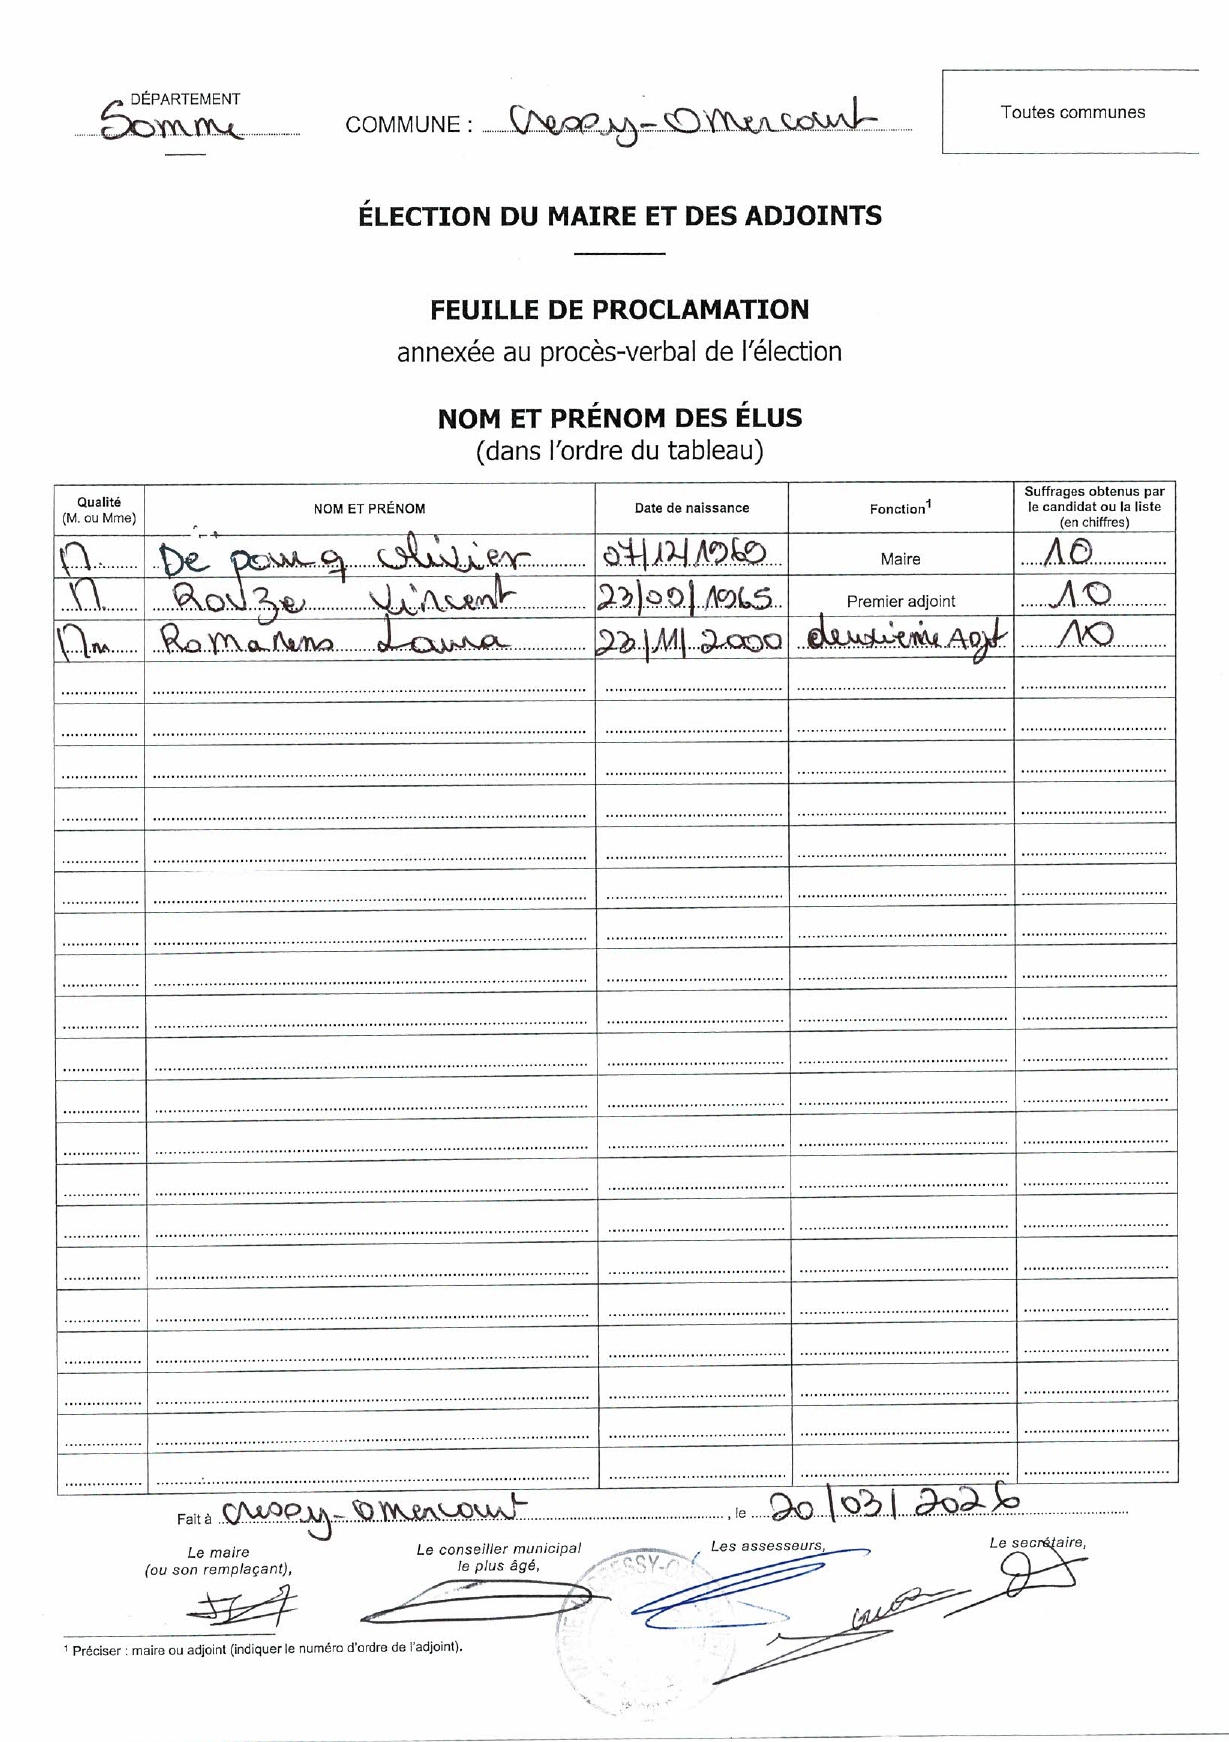 DÉPARTEMENT
Somme
COMMUNE : Cressy-Omencourt
Toutes communes
ÉLECTION DU MAIRE ET DES ADJOINTS
FEUILLE DE PROCLAMATION
annexée au procès-verbal de l'élection
NOM ET PRÉNOM DES ÉLUS
(dans l'ordre du tableau)
Qualité (M. ou Mme) NOM ET PRÉNOM Date de naissance Fonction¹ Suffrages obtenus par le candidat ou la liste (en chiffres)
M. De Olivier 07/12/1969 Maire 10
M. Rouze Vincent 23/09/1965 Premier adjoint 10
Mm Romanens Laura 23/11/2000 deuxième Adjt 10
Fait à Cressy-Omencourt, le 20/03/2026
Le maire
(ou son remplaçant),
Le conseiller municipal
le plus âgé,
Les assesseurs,
Le secrétaire,
¹ Préciser : maire ou adjoint (indiquer le numéro d'ordre de l'adjoint).